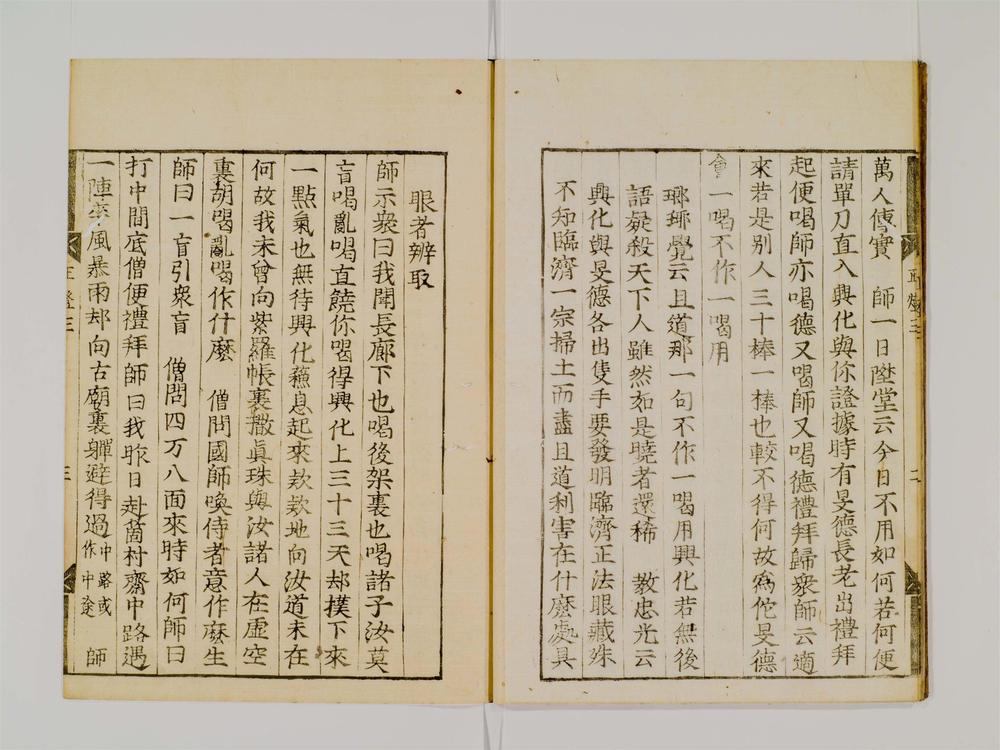 萬人傳實　師一日陞堂云今日不用如何若何便
請單刀直入興化與你證據時有旻德長老出禮拜
起便喝師亦喝德又喝師又喝德禮拜歸衆師云適
來若是別人三十棒一棒也較不得何故為佗旻德
會一喝不作一喝用
瑯瑘覺云且道那一句不作一喝用興化若無後
語疑殺天下人雖然如是曉者還稀　教忠光云
興化與旻德各出隻手要發明臨濟正法眼藏殊
不知臨濟一宗掃土而盡且道利害在什麽處具
二
眼者辨取
師示衆曰我聞長廊下也喝後架裏也喝諸子汝莫
盲喝亂喝直饒你喝得興化上三十三天却撲下來
一點氣也無待興化蘓息起來欵欵地向汝道未在
何故我未曾向紫羅帳裏撒眞珠與汝諸人在虛空
裏胡喝亂喝作什麽　僧問國師喚侍者意作麽生
師曰一盲引衆盲　僧問四万八面來時如何師曰
打中間底僧便禮拜師曰我昨日赴箇村齋中路遇
一陣卒風暴雨却向古廟裏嚲避得過中路或作中途　師
三